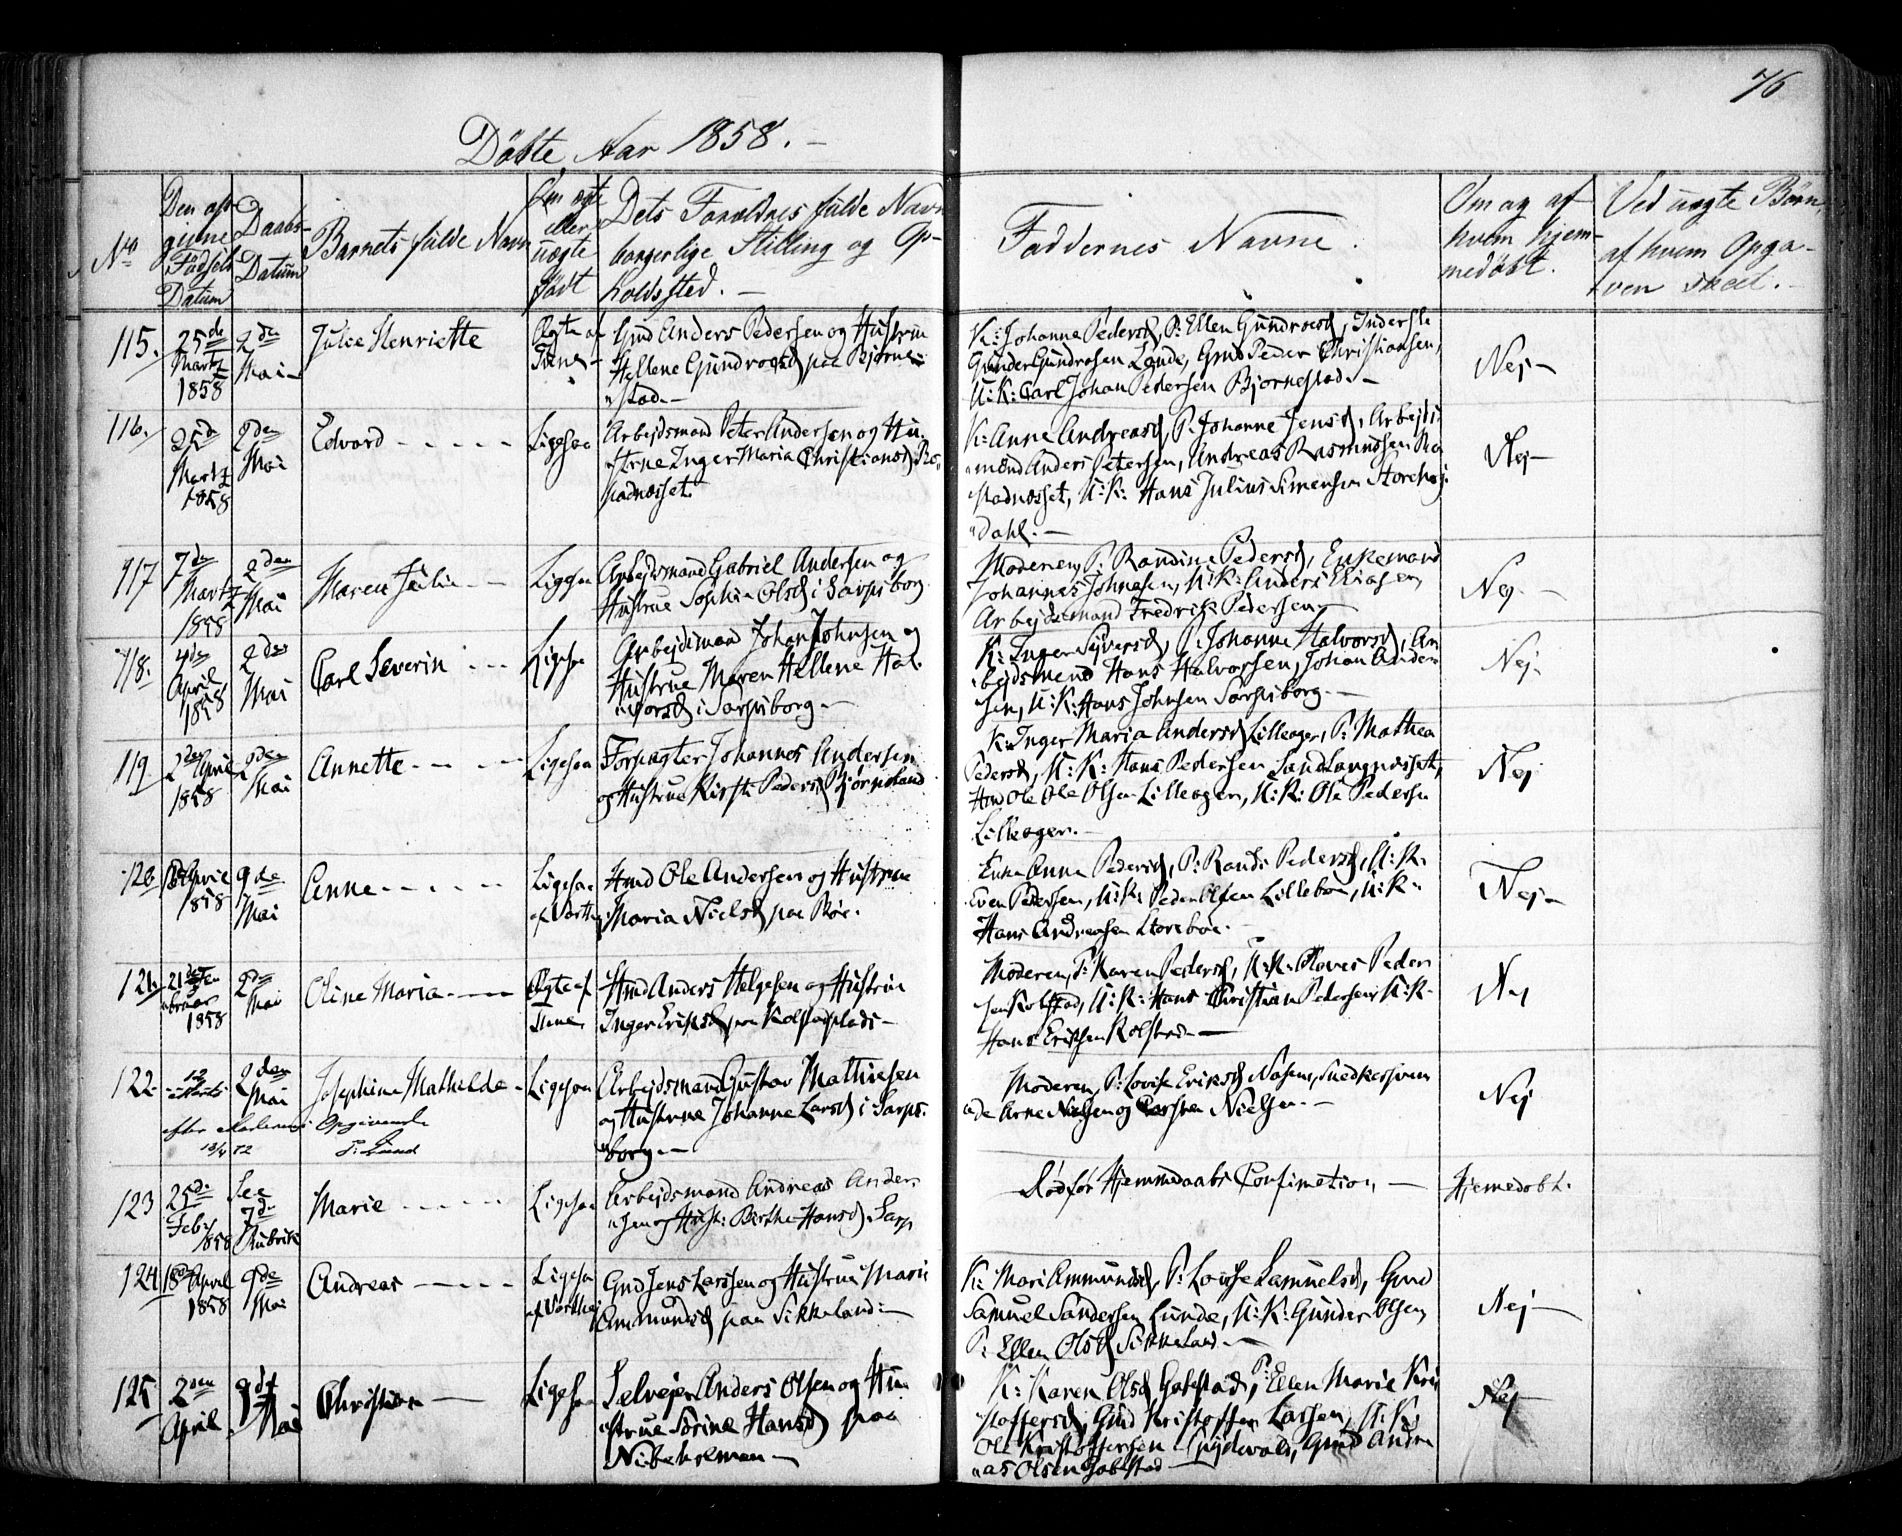 76
Döbte Aar 1858. –
No
Den op-
givne
Födsels
Datum
Daabs-
Datum
Barnets fulde Navn
Om ægte
eller
uægte
födt
Dets Forældres fulde Navn
borgerlige Stilling og Op-
holdssted. –
Faddernes Navne.
Om og af
hvem hjem-
medöbt.
Ved uægte Börn,
af hvem Opga-
ven skeet. –
115.
25de
Martz
1858
2den
Mai –
Julie Henriette
Ægte af
Tune –
Gmd Anders Pedersen og Hustrue
Hellene Gundrosd paa Bjørne-
stad. –
K: Johanne Pedersd, P: Ellen Gundrosd, Inderste
Gunder Gundrosen Lande, Gmd Peder Christiansen,
U:K: Carl Johan Pedersen Bjornestad. –
Nej –
116.
25de
Martz
1858
2den
Mai
Edvard
Ligesaa
Arbejdsmand Peter Andersen og Hu-
strue Inger Maria Christiansd Ro-
stadnæsset.
K: Anne Andreasd, P: Johanne Jensd, Arbejds-
mænd Anders Petersen, Andreas Rasmussen Ro-
stadnæsset, U:K: Hans Julius Simensen Storehaj-
dahl. –
Nej –
117
7de
Martz
1858
2den
Mai
Maren Julie
Ligesaa
Arbejdsmand Gabriel Andersen og
Hustrue Sophie Olsd i Sarpsborg
Moderen, P: Randine Pedersd, Enkemand
Johannes Johnsen, U:K: Anders Eliasen,
Arbejdsmand Fredrik Pedersen
Nej. –
118.
4de
April
1858
2den
Mai
Carl Severin
Ligesaa
Arbejdsmand Johan Johnsen og
Hustrue Maren Hellene Hal-
vorsd i Sarpsborg –
K: Inger Syversd, P: Johanne Halvorsd, Ar-
bejdsmænd Hans Halvorsen, Johan Ander-
sen, U:K: Hans Johnsen Sarpsborg. –
Nej.
119
2den April
1858
2den
Mai
Annette
Ligesaa
Forpagter Johannes Andersen
og Hustrue Kirsti Pedersd Bjørneland
K: Inger Maria Andersd Lilleager, P: Mathea
Pedersd, U:K: Hans Pedersen Sandlangnæsset,
Hmd Ole Ole Olsen Lilleagen, U:K: Ole Pedersen
Lilleager. –
Nej
120
April
1858
9de
Mai
Anne
Ligesaa
af Varteig
Hmd Ole Andersen og Hustrue
Maria Nielsd paa Böe.
Enke Anna Pedersd, P: Randi Pedersd, U:K:
Even Pedersen, U:K: Peder Olsen Lilleböe, U:K:
Hans Andreasen Storeböe.
Nej –
121.
21de Fe-
bruar
1858
2den
Mai
Oline Maria
Ægte af
Tune
Hmd Anders Helgesen og Hustrue
Inger Eriksd paa Kolstadplads –
Moderen, P: Karen Pedersd, U:K: Oloves Peder-
sen Kolstad, U:K: Hans Christian Pedersen, U:K:
Hans Eriksen Kolstad –
Nej
122
12
Marts
2den
Mai
Josephine Mathilde
efter Moderens Opgivende
13/4 72 Lund
Ligesaa
Arbejdsmand Gustav Mathiesen
og Hustrue Johanne Larsd i Sarps-
borg. –
Moderen, P: Lovise Eriksd Nasen, Snedkersven-
de Arne Nielsen og Carsten Nielsen. –
Nej
123
25de
Feb.
1858
See
7de
Rubrik
Marie
Ligesaa
Arbejdsmand Andreas Ander-
sen og Hust: Berthe Hansd Sarp
Dødfør Hjemmedaabs Confirmation, –
Hjemedobt.
124
18de April
1858
9de
Mai
Andreas
Ligesaa
af Varteig
Gmd Jens Larssen og Hustrue Marie
Ammundsd paa Sikkeland: –
K: Mari Ammundsd, P: Lovise Samuelsd, Gmd
Samuel Sandersen Lunde, U:K: Gunder Olsen,
P: Ellen Olsd Sikkeland. –
Nej –
125
2den
April
9de
Mai
Christian
Ligesaa
Selvejer Anders Olsen og Hu-
strue Sorine Hansd paa
Nibeholmen –
K: Karen Olsd Gabestad, P: Ellen Marie Kri-
stoffersd, Gmd Kristoffer Larsen, U:K:
Ole Kristoffersen Gmd Andre-
as Olsen Gabestad
Nej –